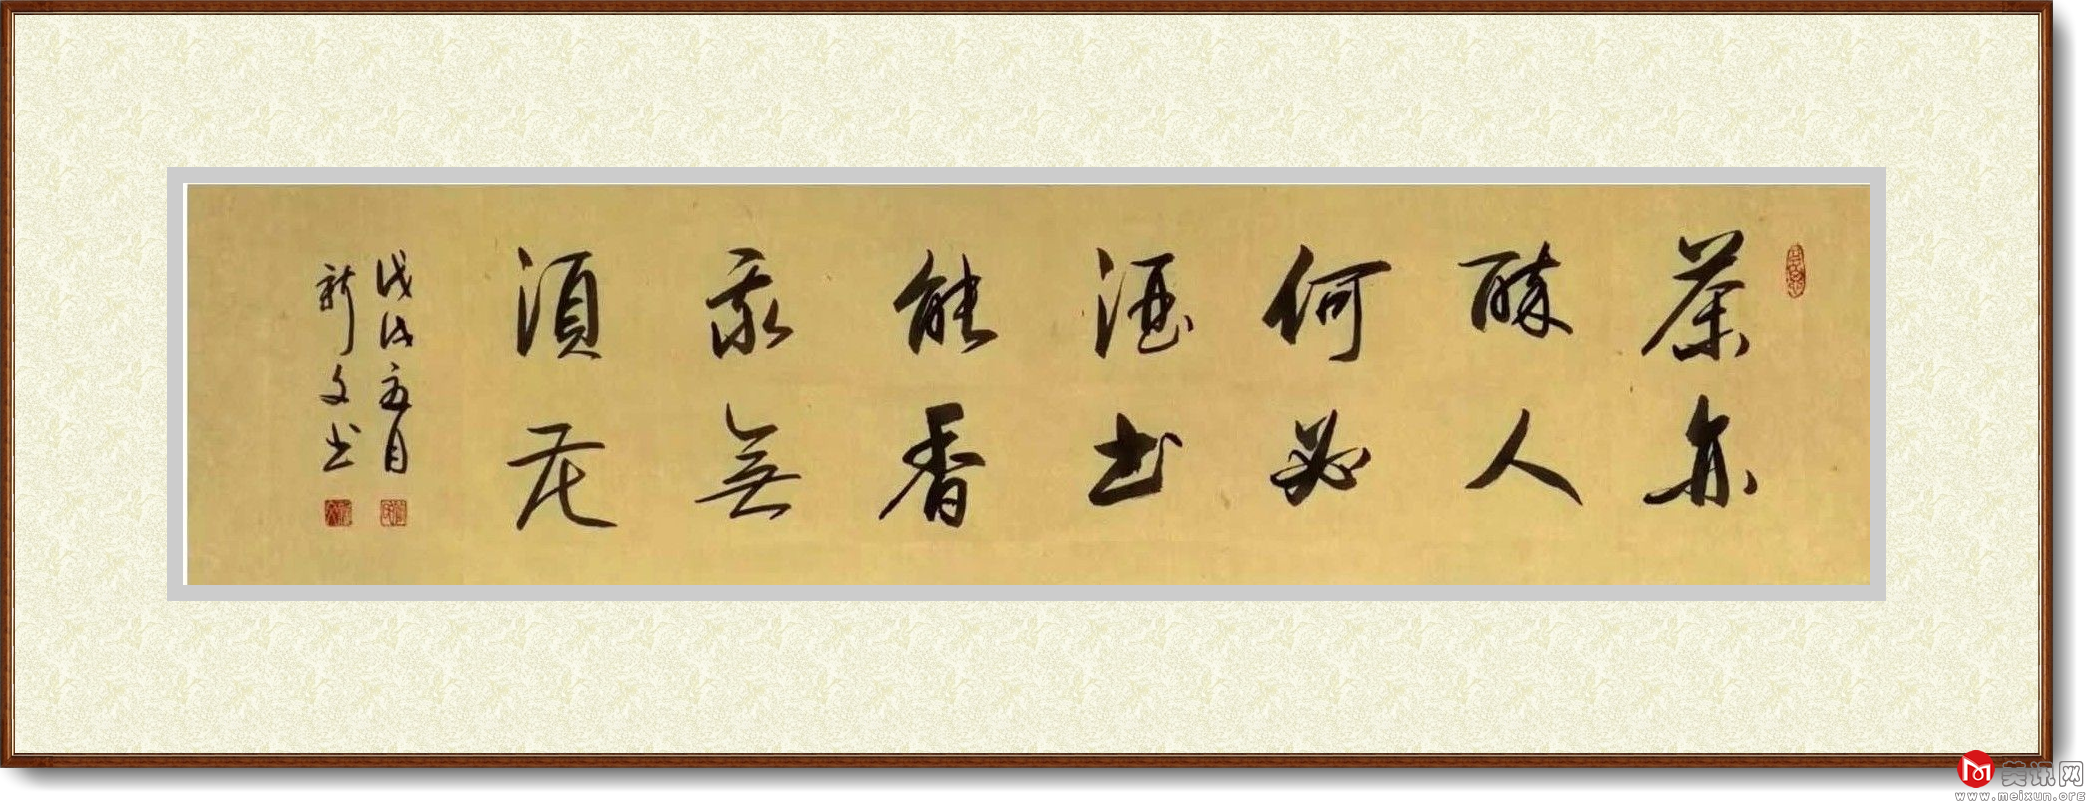 茶亦
醉人
何必
酒书
能香
我無
須花
戊戌夏月
新文书
美讯网
www.meixun.org